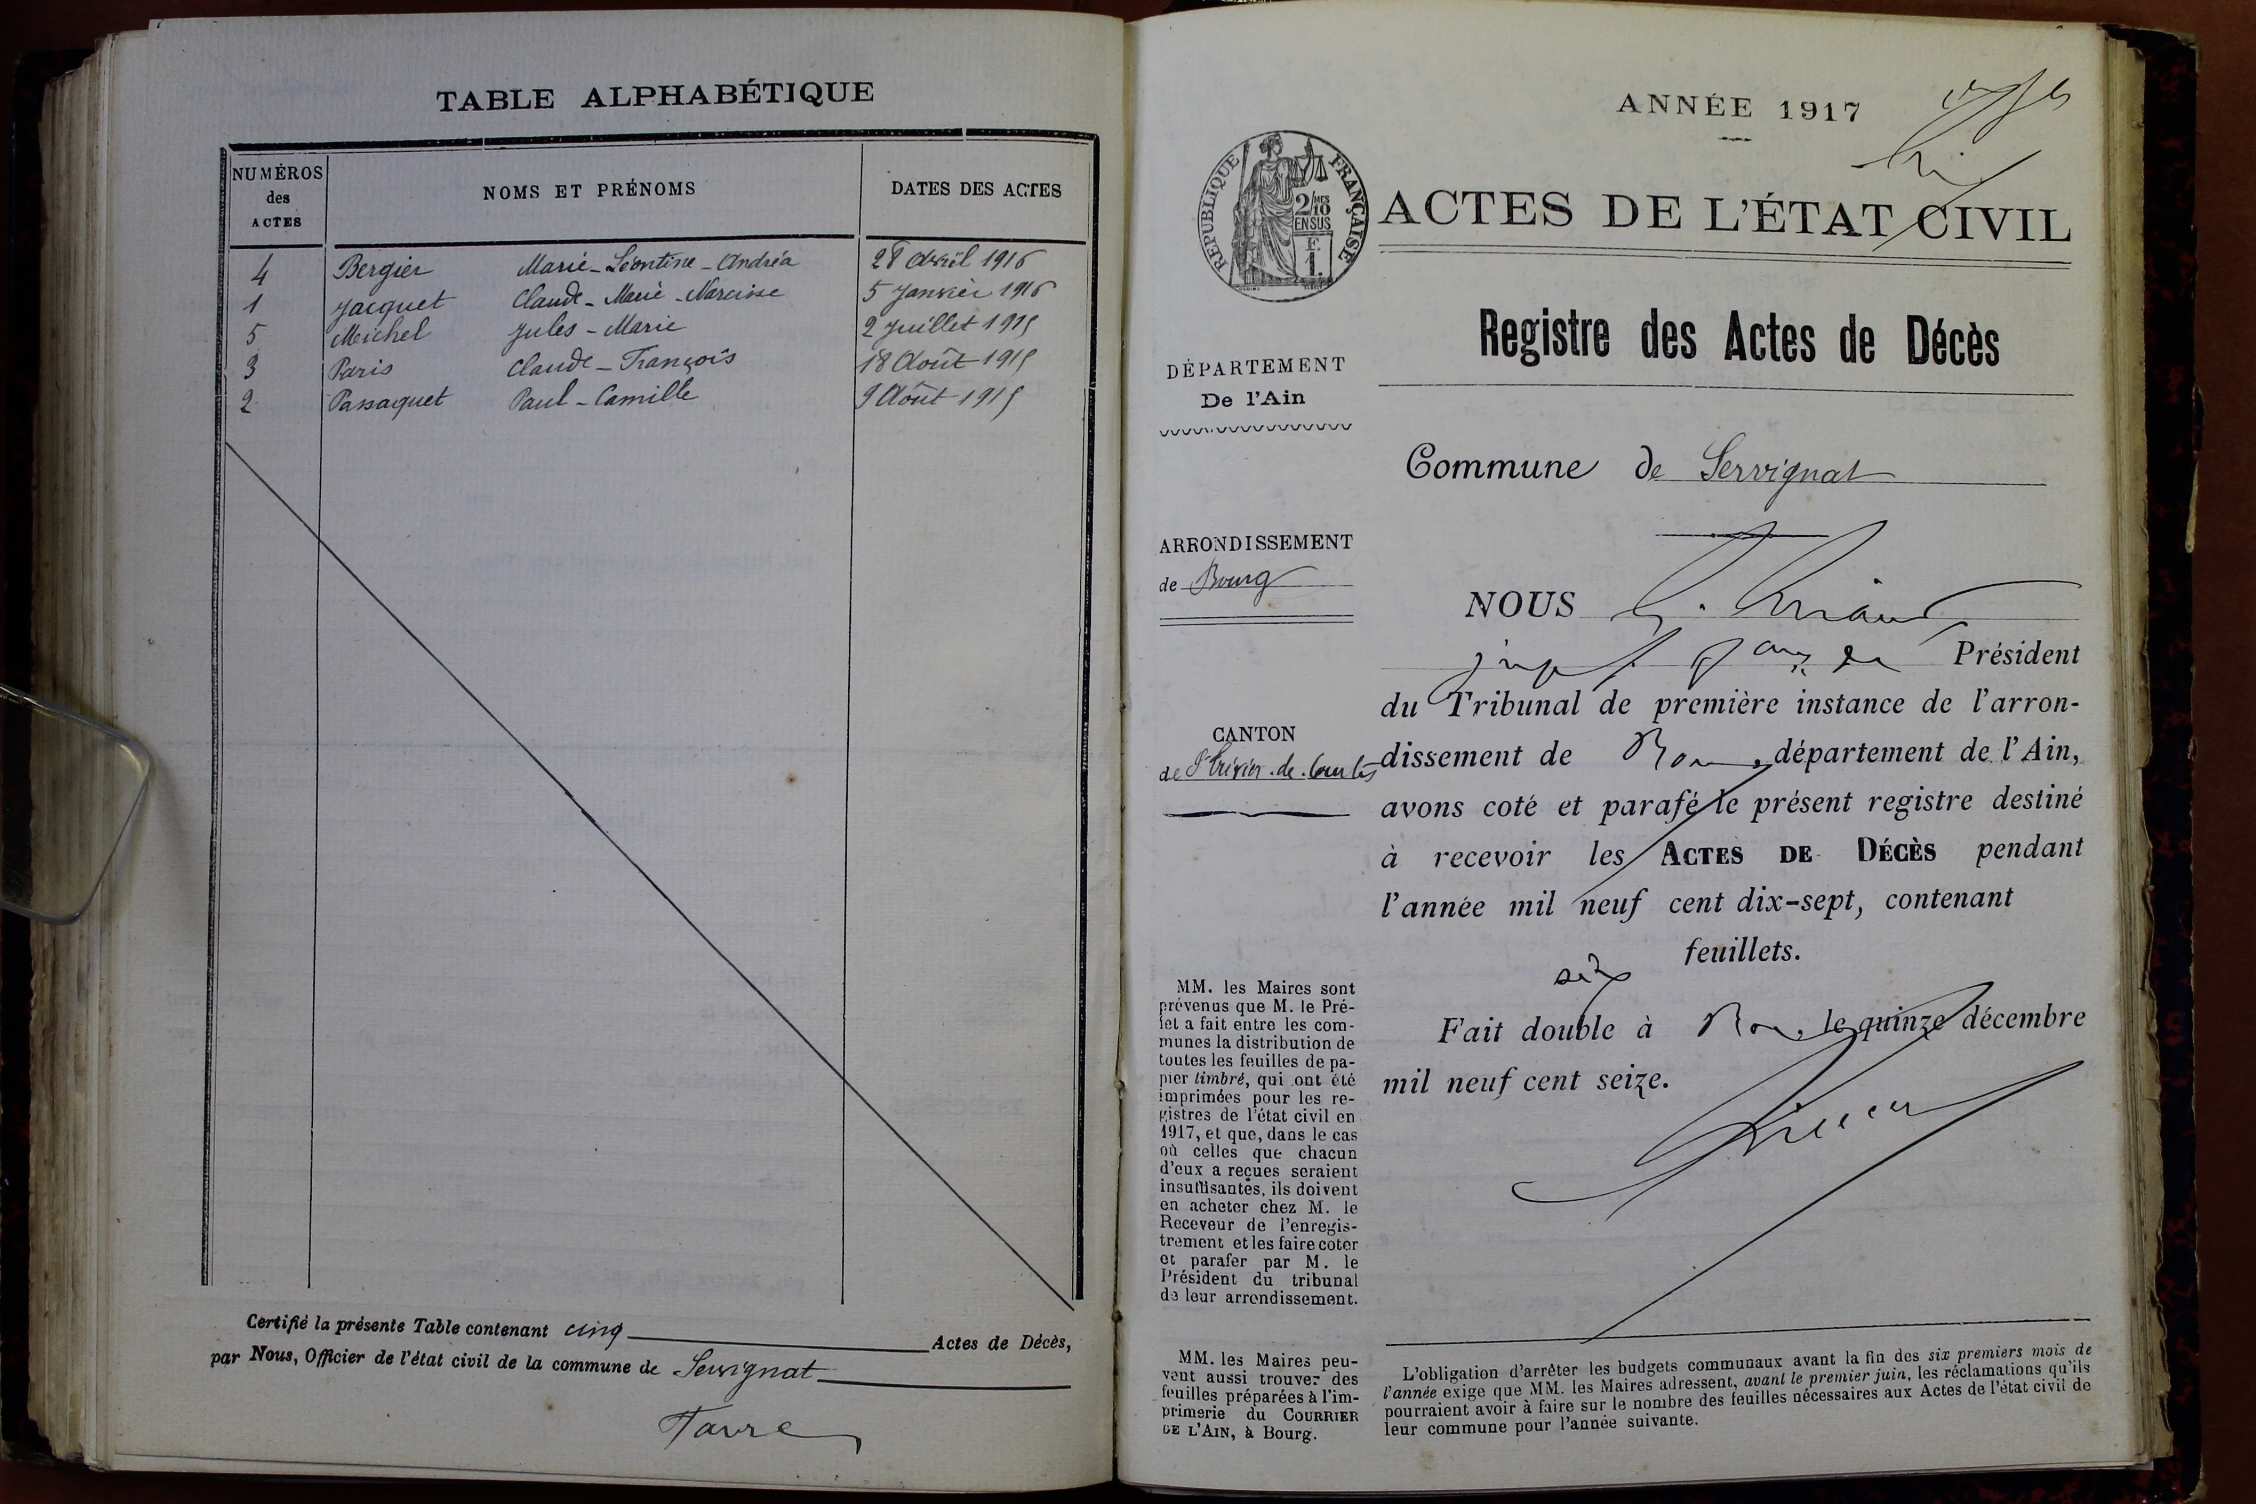 TABLE ALPHABÉTIQUE
NUMÉROS des ACTES | NOMS ET PRÉNOMS | DATES DES ACTES
4 Bergier Marie-Léontine-Andréa 28 Avril 1916
1 Jacquet Claude-Marie-Narcisse 5 Janvier 1916
5 Michel Jules-Marie 2 Juillet 1915
3 Paris Claude-François 18 Août 1915
2 Passaquet Paul-Camille 9 Août 1915
Certifié la présente Table contenant cinq Actes de Décès,
par Nous, Officier de l'état civil de la commune de Servignat
Favre
ANNÉE 1917
RÉPUBLIQUE FRANÇAISE
2/10 MES
EN SUS
F.
1.
ACTES DE L'ÉTAT CIVIL
Registre des Actes de Décès
DÉPARTEMENT
De l'Ain
Commune de Servignat
ARRONDISSEMENT
de Bourg
CANTON
de St Trivier-de-Courtes
MM. les Maires sont
prévenus que M. le Pré-
fet a fait entre les com-
munes la distribution de
toutes les feuilles de pa-
pier timbré, qui ont été
imprimées pour les re-
gistres de l'état civil en
1917, et que, dans le cas
où celles que chacun
d'eux a reçues seraient
insuffisantes, ils doivent
en acheter chez M. le
Receveur de l'enregis-
trement et les faire coter
et parafer par M. le
Président du tribunal
de leur arrondissement.
MM. les Maires peu-
vent aussi trouver des
feuilles préparées à l'im-
primerie du COURRIER
DE L'AIN, à Bourg.
NOUS
Président
du Tribunal de première instance de l'arron-
dissement de Bourg, département de l'Ain,
avons coté et parafé le présent registre destiné
à recevoir les ACTES DE DÉCÈS pendant
l'année mil neuf cent dix-sept, contenant
six feuillets.
Fait double à Bourg, le quinze décembre
mil neuf cent seize.
L'obligation d'arrêter les budgets communaux avant la fin des six premiers mois de
l'année exige que MM. les Maires adressent, avant le premier juin, les réclamations qu'ils
pourraient avoir à faire sur le nombre des feuilles nécessaires aux Actes de l'état civil de
leur commune pour l'année suivante.